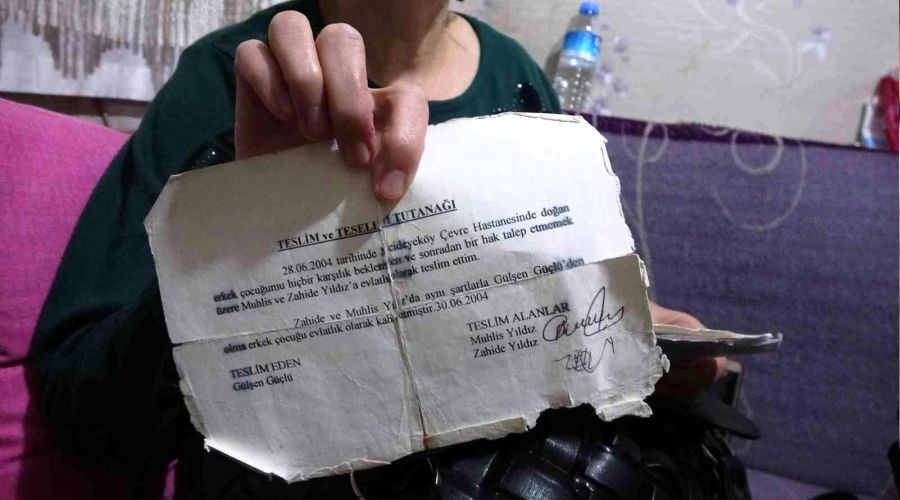 TESLİM ve TESELLÜM TUTANAĞI
28.06.2004 tarihinde Mecidiyeköy Çevre Hastanesinde doğan
erkek çocuğumu hiçbir karşılık beklemeden ve sonradan bir hak talep etmemek
üzere Muhlis ve Zahide Yıldız'a evlatlık olarak teslim ettim.
Zahide ve Muhlis Yıldız'da aynı şartlarla Gülşen Güçlü'den
olma erkek çocuğu evlatlık olarak kabul etmiştir.30.06.2004
TESLİM EDEN
Gülşen Güçlü
TESLİM ALANLAR
Muhlis Yıldız
Zahide Yıldız